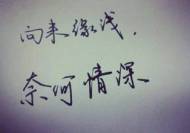 向来缘浅.
奈何情深